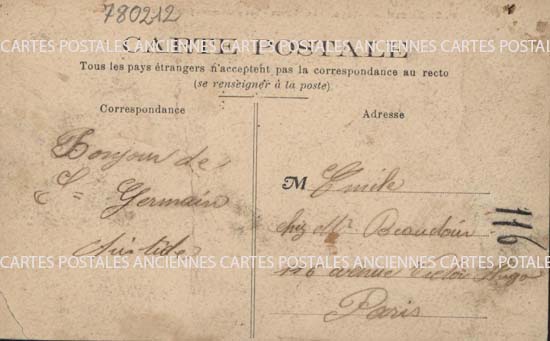 780212
CARTE POSTALE
CARTES POSTALES ANCIENNES CARTES POSTALES ANCIENNES CARTES POSTALES ANCIENNES CARTES
Tous les pays étrangers n'acceptent pas la correspondance au recto
(se renseigner à la poste)
Correspondance
Bonjour de
St = Germain
CARTES POSTALES ANCIENNES CARTES POSTALES ANCIENNES CARTES POSTALES ANCIENNES CARTES
Adresse
M Emile
chez Mr Beaudoin
116 avenue Victor Hugo
Paris
116